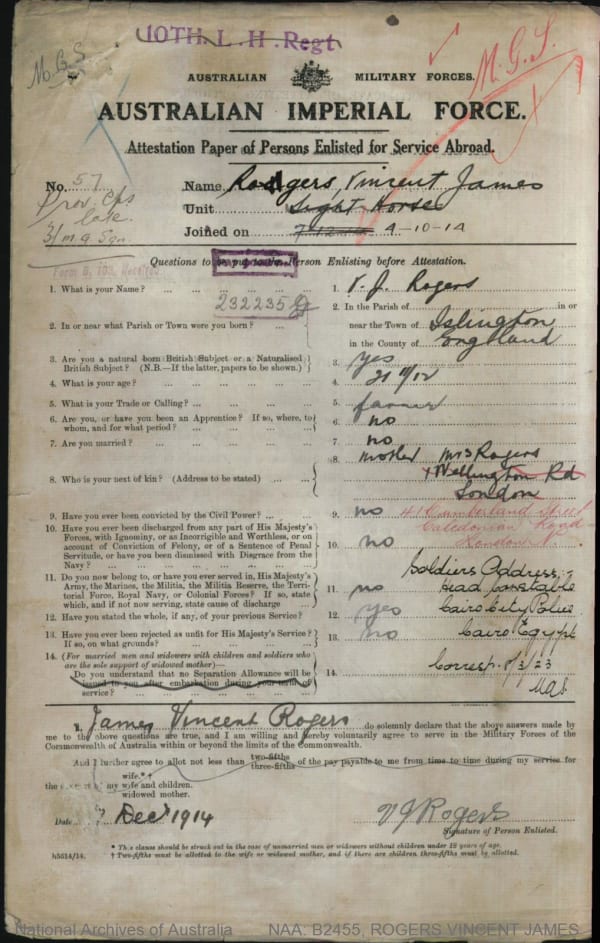 10TH. L. H. Regt
M.G.S.
M.G.S.
AUSTRALIAN MILITARY FORCES.
AUSTRALIAN IMPERIAL FORCE.
Attestation Paper of Persons Enlisted for Service Abroad.
No. 57 Name Rodgers, Vincent James
Unit Light Horse
Joined on 4-10-14
Prev. Cps
3/M G Sqn
Questions to be put to the Person Enlisting before Attestation.
Form B. 103. Received
232235
1. What is your Name? ... 1. V. J. Rogers
2. In or near what Parish or Town were you born? ... 2. In the Parish of ... in or
near the Town of Islington
in the County of England
3. Are you a natural born British Subject or a Naturalised British Subject? (N.B.—If the latter, papers to be shown.) 3. Yes
4. What is your age? ... 4. 21 9/12
5. What is your Trade or Calling? ... 5. farmer
6. Are you, or have you been an Apprentice? If so, where, to whom, and for what period? ... 6. no
7. Are you married? ... 7. no
8. Who is your next of kin? (Address to be stated) ... 8. mother Mrs Rogers
Wellington Rd
London
41 Cumberland Street
Caledonian Road
London N
9. Have you ever been convicted by the Civil Power? ... 9. no
10. Have you ever been discharged from any part of His Majesty's Forces, with Ignominy, or as Incorrigible and Worthless, or on account of Conviction of Felony, or of a Sentence of Penal Servitude, or have you been dismissed with Disgrace from the Navy? ... 10. no
Soldiers Address:-
Head Constable
Cairo City Police
Cairo Egypt
Corresp. 8/3/23
11. Do you now belong to, or have you ever served in, His Majesty's Army, the Marines, the Militia, the Militia Reserve, the Territorial Force, Royal Navy, or Colonial Forces? If so, state which, and if not now serving, state cause of discharge ... 11. no
12. Have you stated the whole, if any, of your previous Service? 12. yes
13. Have you ever been rejected as unfit for His Majesty's Service? If so, on what grounds? ... 13. no
14. (For married men and widowers with children and soldiers who are the sole support of widowed mother)—
Do you understand that no Separation Allowance will be issued to you after embarkation during your term of service? ... 14.
I, James Vincent Rogers do solemnly declare that the above answers made by
me to the above questions are true, and I am willing and hereby voluntarily agree to serve in the Military Forces of the
Commonwealth of Australia within or beyond the limits of the Commonwealth.
And I further agree to allot not less than two-fifths three-fifths of the pay payable to me from time to time during my service for
wife.*†
the support of my wife and children.
widowed mother.
Date 7 Dec 1914 V J Rogers
Signature of Person Enlisted.
* This clause should be struck out in the case of unmarried men or widowers without children under 18 years of age.
† Two-fifths must be allotted to the wife or widowed mother, and if there are children three-fifths must be allotted.
h5614/14.
National Archives of Australia NAA: B2455, ROGERS VINCENT JAMES